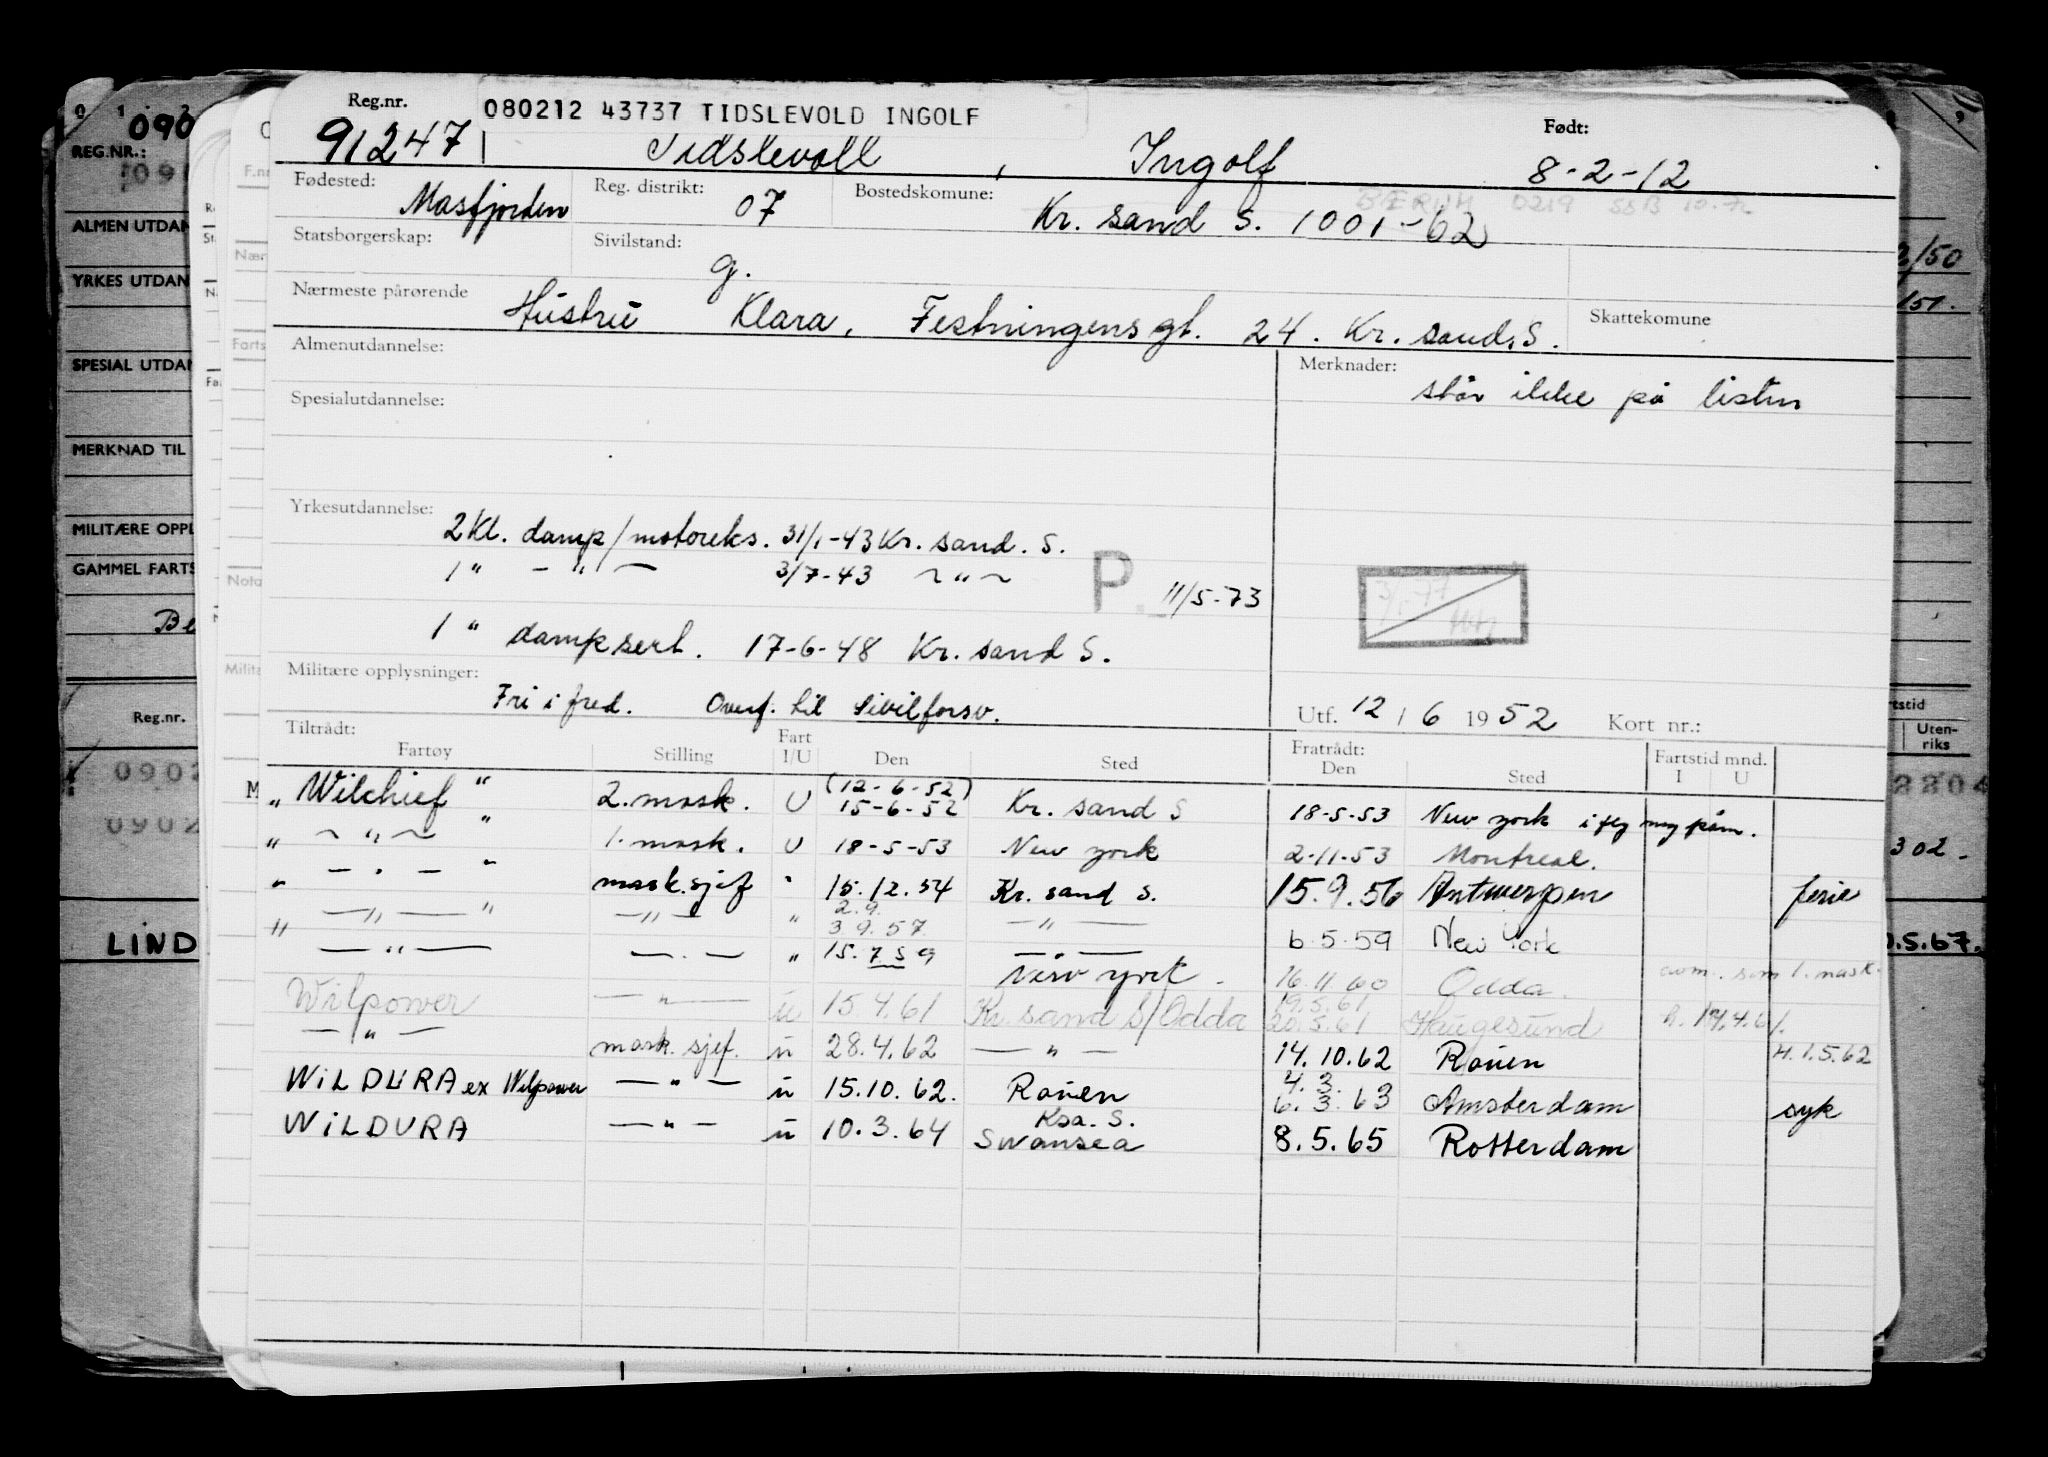 Reg.nr. 080212 43737 TIDSLEVOLD INGOLF Født:
91247 Tidslevoll, Ingolf 8-2-12
Fødested: Masfjorden Reg. distrikt: 07 Bostedskomune: Kr. sand S. 1001-62
BÆRUM 0219 SSB 10.72
Statsborgerskap: Sivilstand: g.
Nærmeste pårørende Hustru Klara, Festningensgt. 24. Kr. sand. S. Skattekomune
Almenutdannelse: Merknader: står ikke på listen
Spesialutdannelse:
Yrkesutdannelse: 2 Kl. damp/motoreks. 31/1-43 Kr. sand. S.
1 " — " — 3/7-43 ~ " ~
P. 11/5-73
1 " dampsert. 17-6-48 Kr. sand S.
Militære opplysninger: Fri i fred. Overf. til Sivilforsv.
Utf. 12/6 1952 Kort nr.:
Tiltrådt: Fratrådt:
Fartøy Stilling Fart I/U Den Sted Den Sted Fartstid mnd. I U
" Wilchief " 2. mask. U (12-6-52) 15-6-52 Kr. sand S 18-5-53 New York
" ~ " ~ " 1. mask. U 18-5-53 New York 2-11-53 Montreal.
" — " — " mask.sjef " 15.12.54 Kr. sand S. 15.9.56 Antwerpen ferie
" — " — " — " — " 2.9. 3.9.57 — " — 6.5.59 New York
— " — — " — " 15.7.59 — " — New York. 16.11.60 Odda. som 1. mask.
Wilpower — " — u 15.4.61 Kr. sand S/Odda 19.5.61 20.5.61 Haugesund
— " — mask. sjef. u 28.4.62 — " — 14.10.62 Rouen H.1.5.62
WILDURA ex Wilpower — " — u 15.10.62. Rouen 4.3. 6.3.63 Amsterdam syk
WILDURA — " — u 10.3.64 Ksa. S. Swansea 8.5.65 Rotterdam
REG.NR.:
ALMEN UTDAN
YRKES UTDAN
SPESIAL UTDAN
MERKNAD TIL
MILITÆRE OPPL
GAMMEL FARTS
Reg.nr.
0902
0902
LIND
Uten-
riks
302
.5.67.